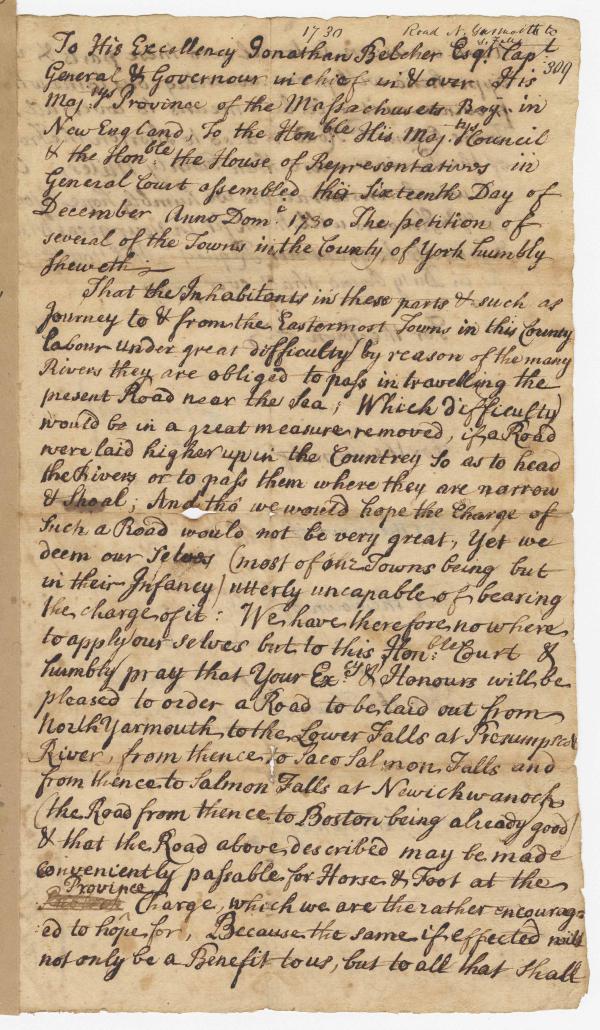 1730 Road N. Yarmouth to
S. Falls
309
To His Excellency Jonathan Belcher Esqr. Capt
General & Governour in chief in & over His
Maj:tys Province of the Massachusets Bay in
New England, To the Hon:ble His Maj:tys Council
& the Hon:ble the House of Representatives in
General Court assembled this Sixteenth Day of
December Anno Dom:i 1730 The petition of
several of the Towns in the County of York humbly
Sheweth
That the Inhabitants in these parts & such as
Journey to & from the Eastermost Towns in this County
labour under great difficulty by reason of the many
Rivers they are obliged to pass in travelling the
present Road near the Sea; Which difficulty
would be in a great measure removed, if a Road
were laid higher up in the Countrey so as to head
the Rivers or to pass them where they are narrow
& Shoal; And tho we would hope the Charge of
such a Road would not be very great, Yet we
deem our selves (most of our Towns being but
in their Infancy) utterly uncapable of bearing
the charge of it: We have therefore no where
to apply our selves but to this Hon:ble Court &
humbly pray that Your Ex:cy & Honours will be
pleased to order a Road to be laid out from
North Yarmouth to the Lower Falls at Presumpscot
River, from thence to Saco Salmon Falls and
from thence to Salmon Falls at Newichwanock
(the Road from thence to Boston being already good)
& that the Road above described may be made
conveniently passable for Horse & Foot at the
Province
Charge, which we are the rather encourag=
ed to hope for, Because the same if effected will
not only be a Benefit to us, but to all that shall